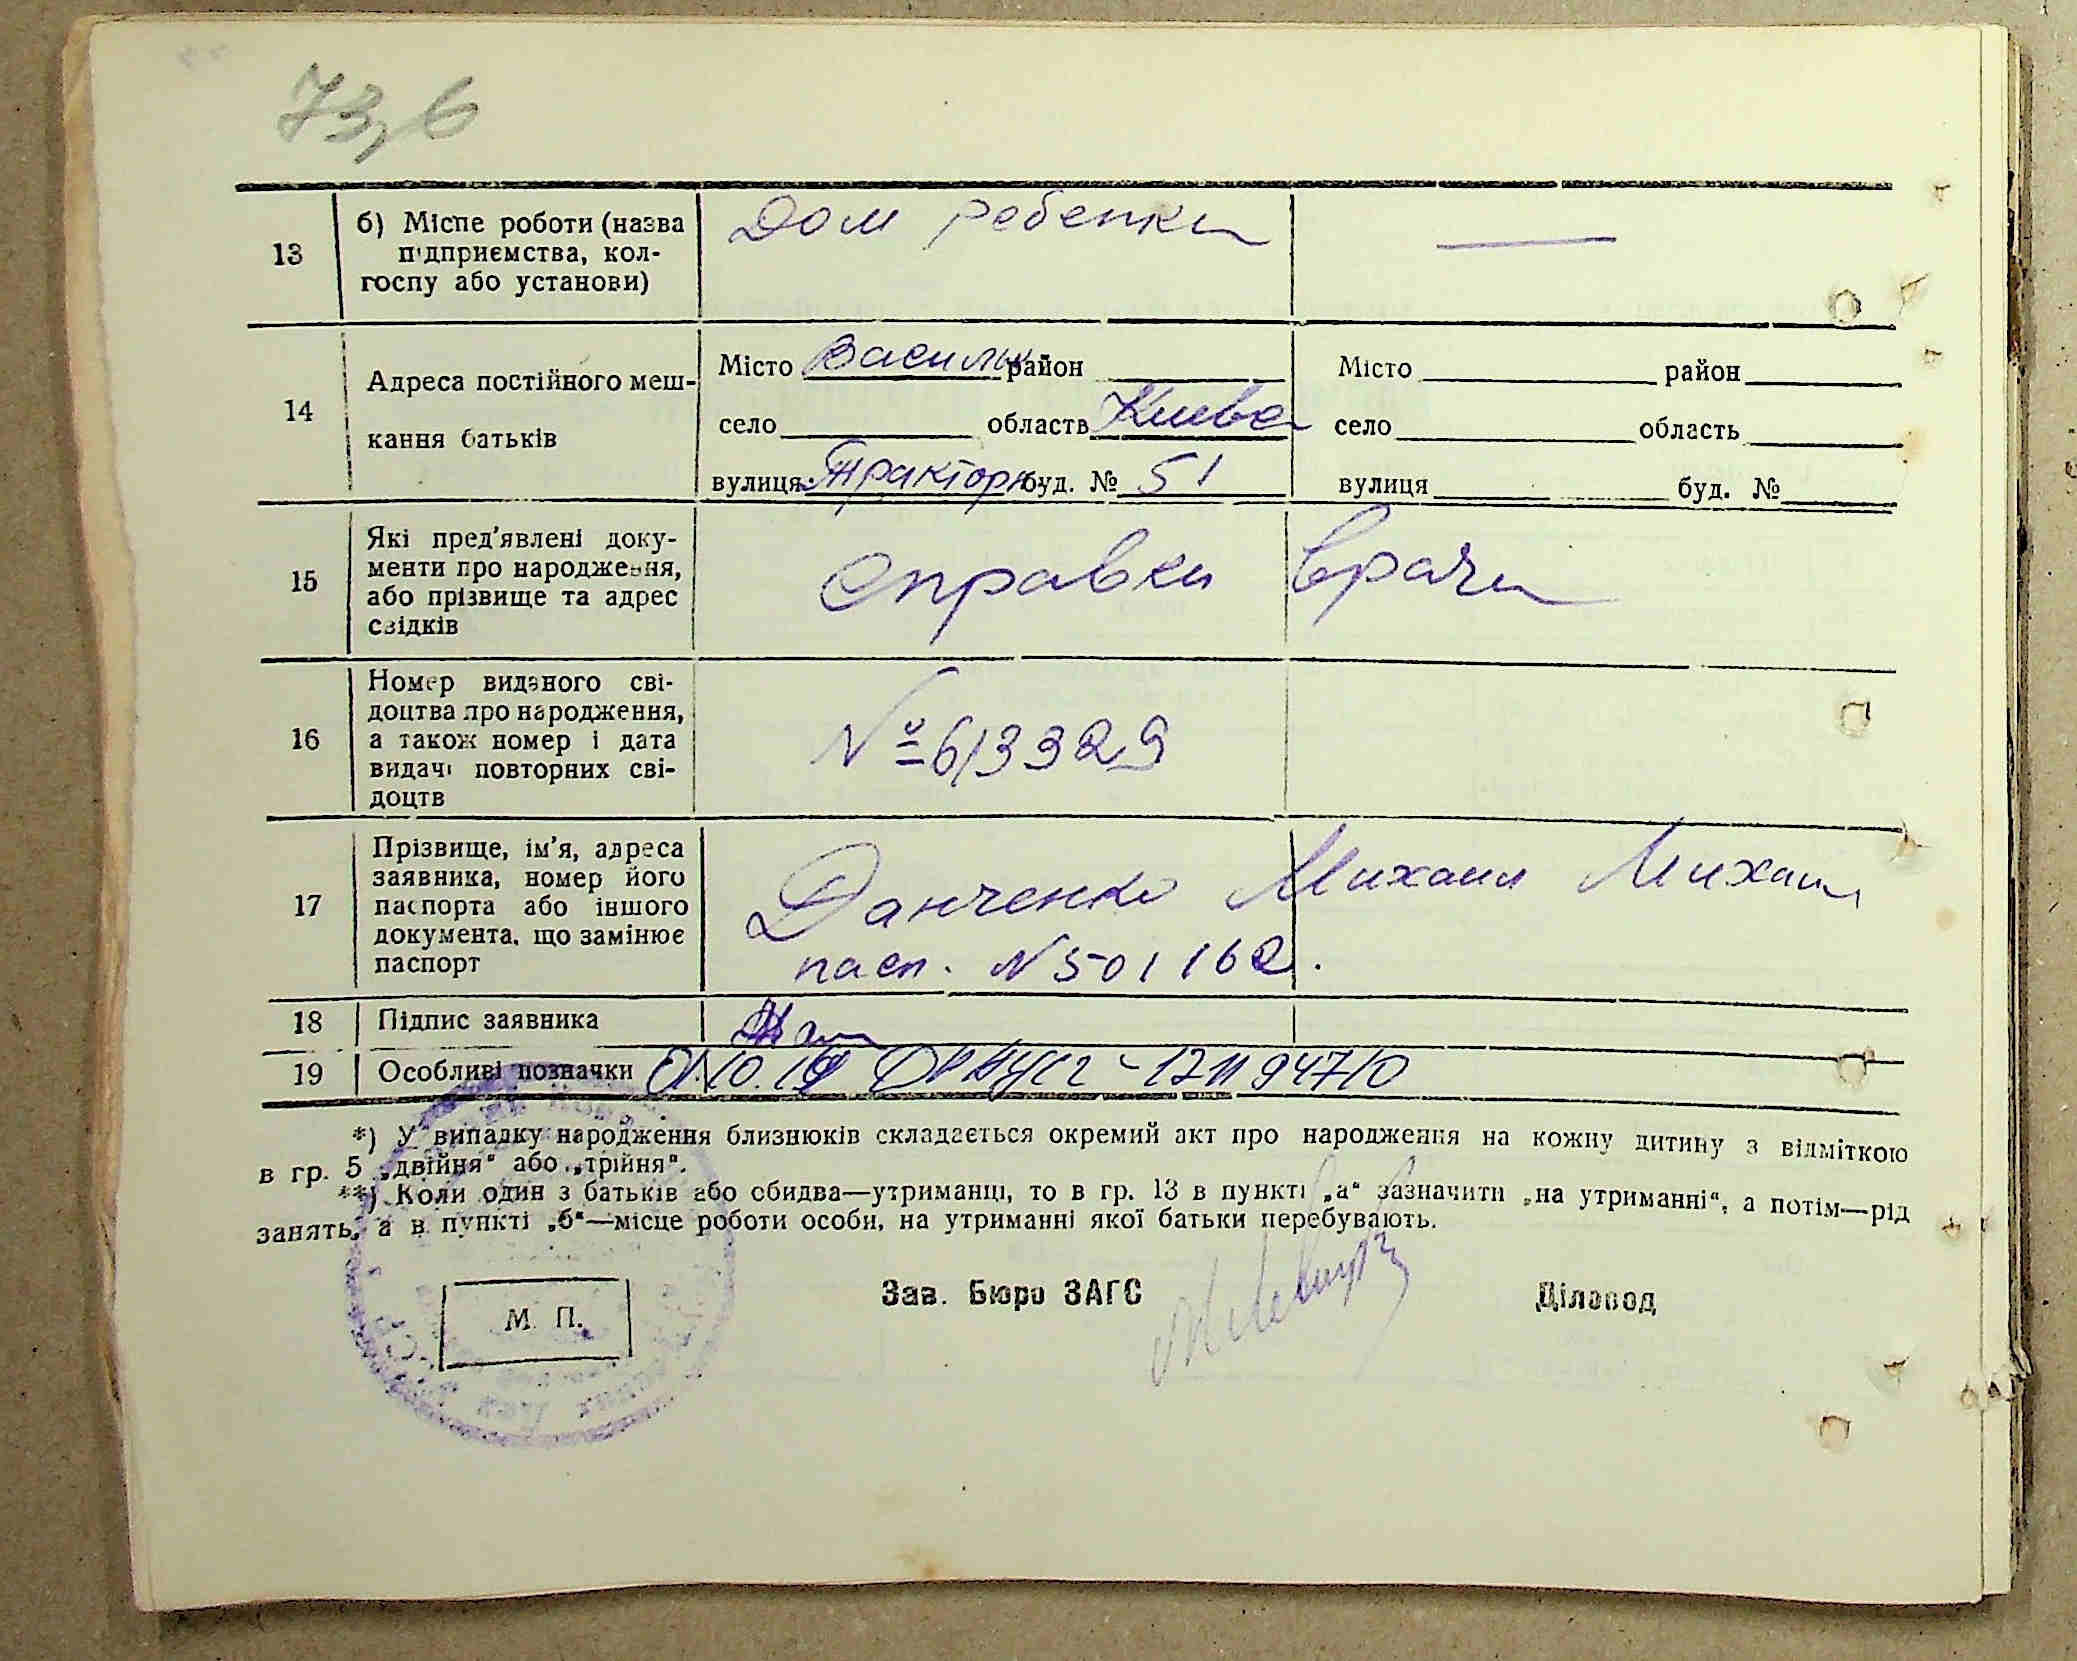 73,6
13
б) Місце роботи (назва
підприємства, кол-
госпу або установи)
Дом ребенка
14
Адреса постійного меш-
кання батьків
Місто Васильк район
село область Киевс
вулиця Тракторн буд. № 51
Місто район
село область
вулиця буд. №
15
Які пред'явлені доку-
менти про народження,
або прізвище та адрес
свідків
Справка врача
16
Номер виданого сві-
доцтва про народження,
а також номер і дата
видачі повторних сві-
доцтв
№ 613329
17
Прізвище, ім'я, адреса
заявника, номер його
паспорта або іншого
документа, що замінює
паспорт
Данченко Михаил Михаил
пасп. N 501162.
18
Підпис заявника
19
Особливі позначки
*) У випадку народження близнюків складається окремий акт про народження на кожну дитину з відміткою
в гр. 5 „двійня" або „трійня".
**) Коли один з батьків або обидва—утриманці, то в гр. 13 в пункті „а" зазначити „на утриманні", а потім—рід
занять, а в пункті „б"—місце роботи особи, на утриманні якої батьки перебувають.
М. П.
Зав. Бюро ЗАГС
Діловод